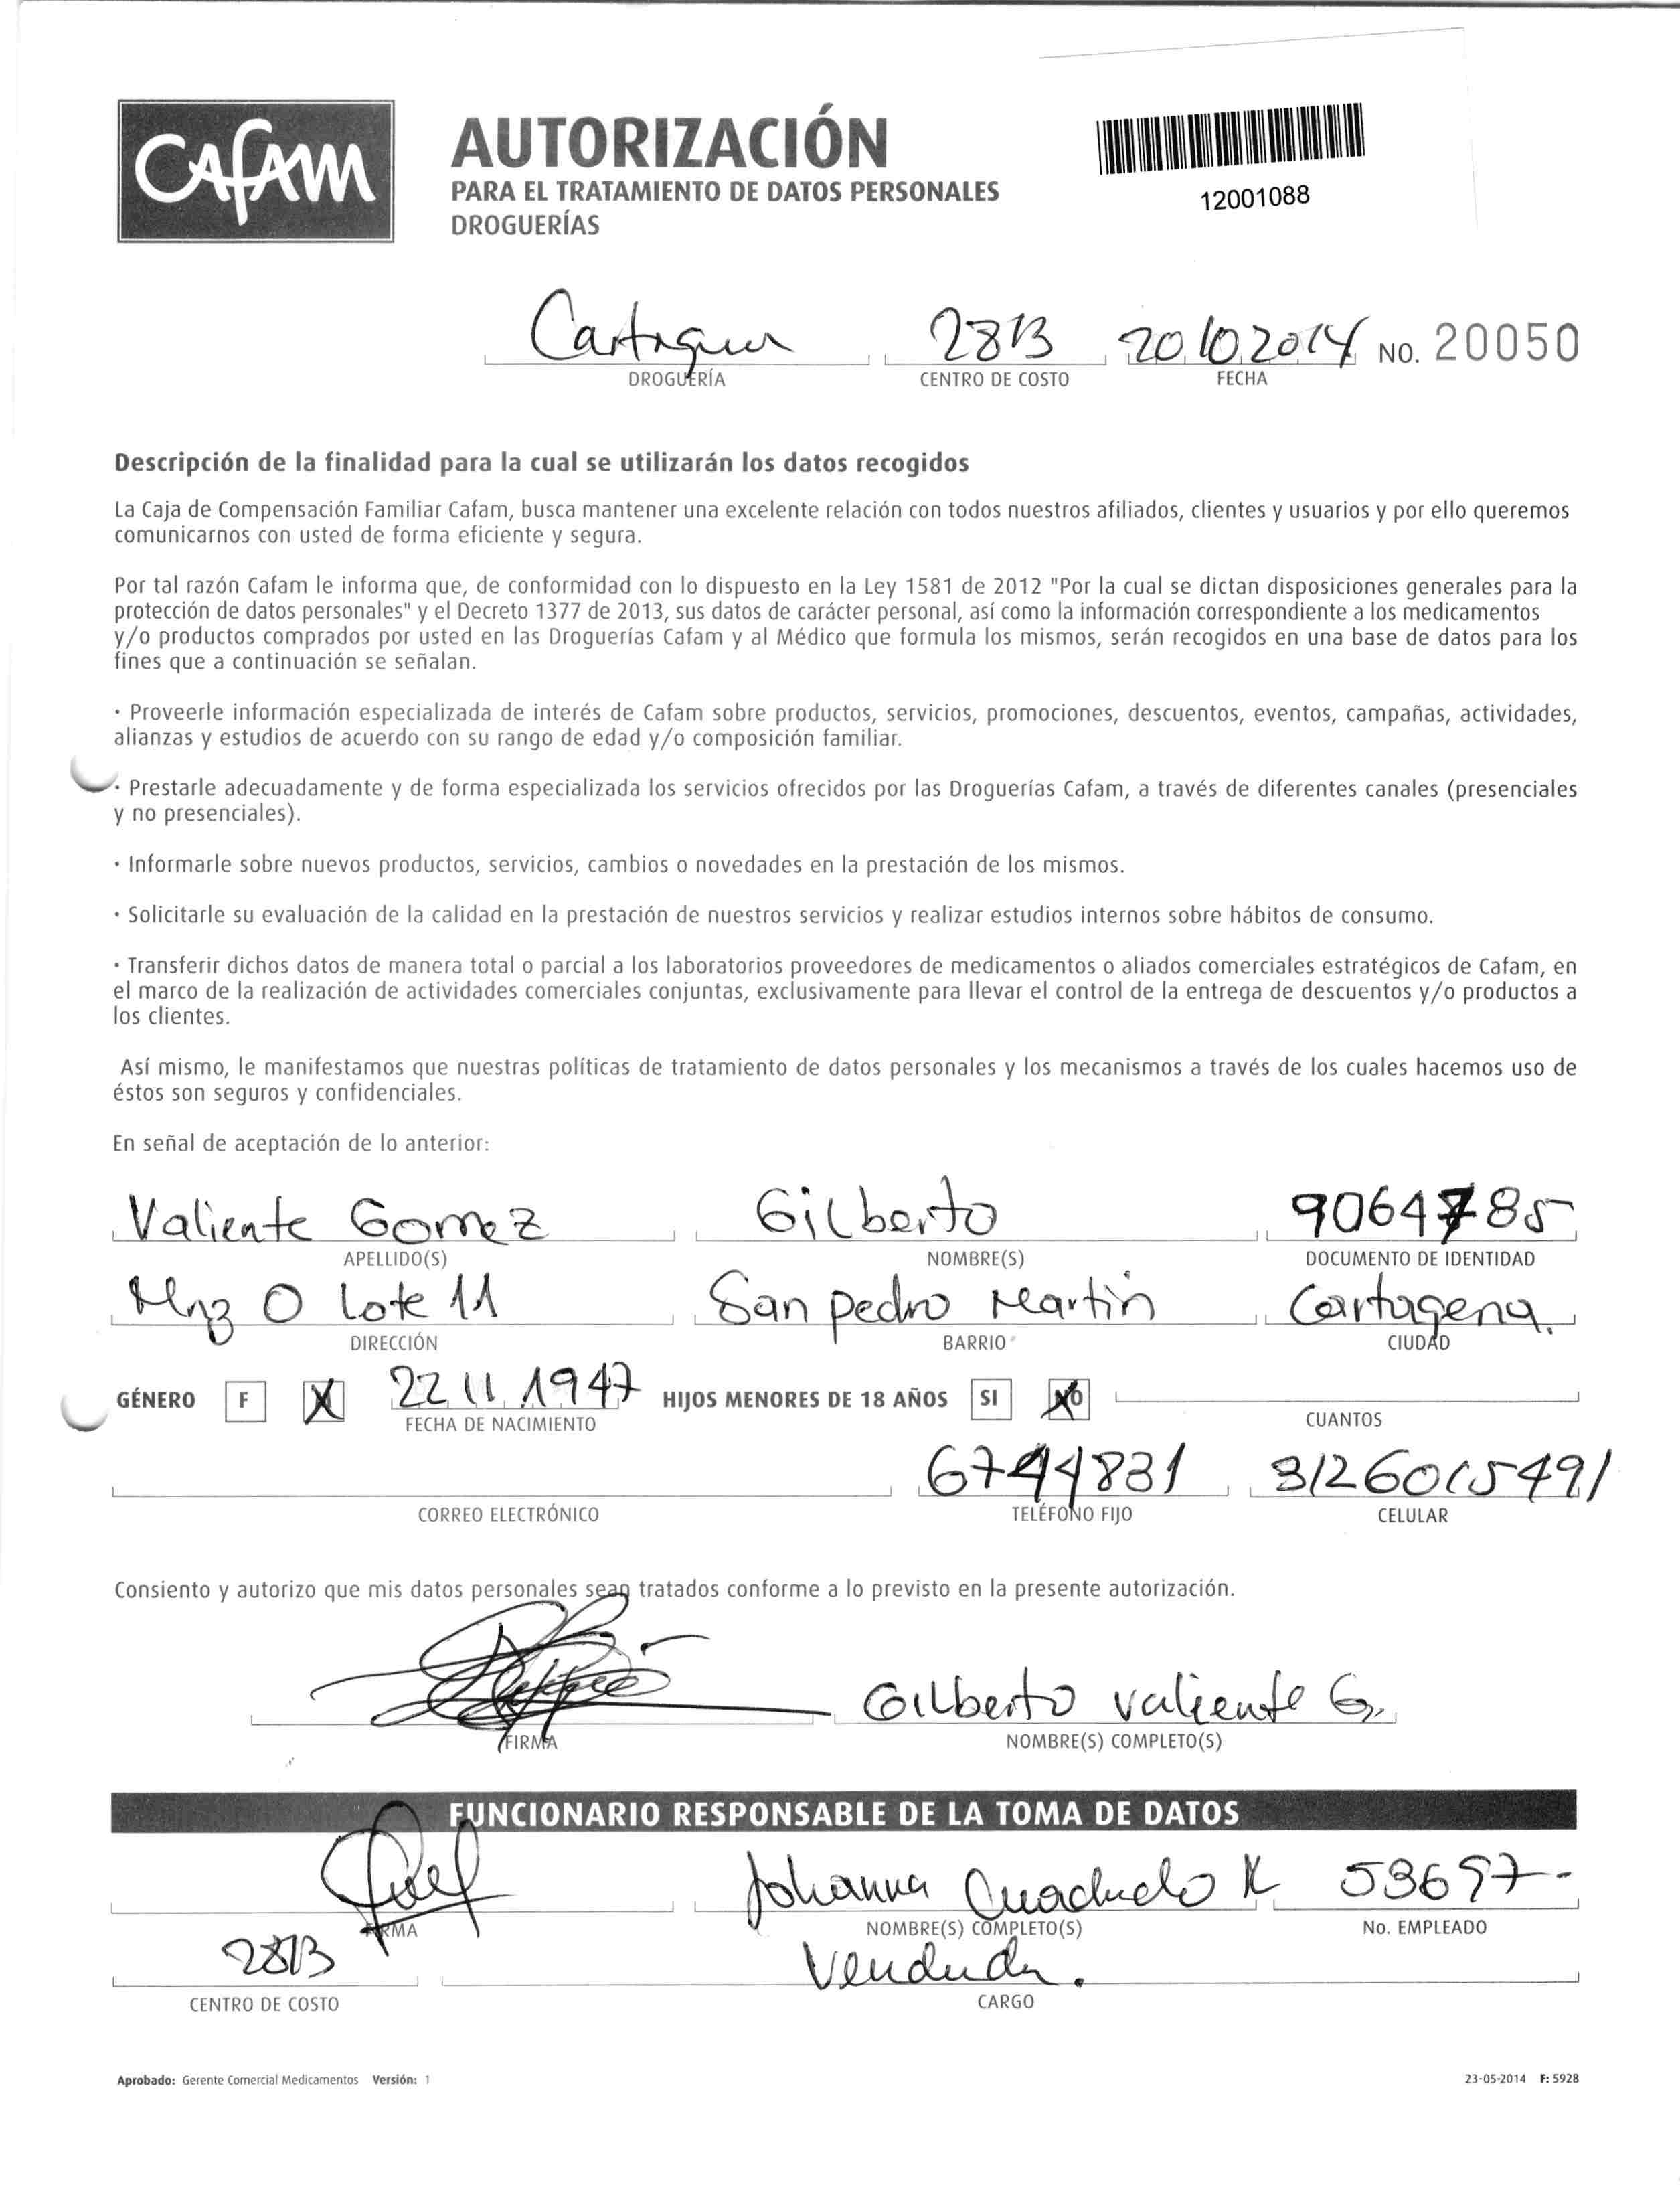 Cafam
AUTORIZACIÓN
PARA EL TRATAMIENTO DE DATOS PERSONALES
DROGUERÍAS
12001088
Cartagena 2813 20 10 2014 NO. 20050
DROGUERÍA CENTRO DE COSTO FECHA
Descripción de la finalidad para la cual se utilizarán los datos recogidos
La Caja de Compensación Familiar Cafam, busca mantener una excelente relación con todos nuestros afiliados, clientes y usuarios y por ello queremos
comunicarnos con usted de forma eficiente y segura.
Por tal razón Cafam le informa que, de conformidad con lo dispuesto en la Ley 1581 de 2012 "Por la cual se dictan disposiciones generales para la
protección de datos personales" y el Decreto 1377 de 2013, sus datos de carácter personal, así como la información correspondiente a los medicamentos
y/o productos comprados por usted en las Droguerías Cafam y al Médico que formula los mismos, serán recogidos en una base de datos para los
fines que a continuación se señalan.
· Proveerle información especializada de interés de Cafam sobre productos, servicios, promociones, descuentos, eventos, campañas, actividades,
alianzas y estudios de acuerdo con su rango de edad y/o composición familiar.
· Prestarle adecuadamente y de forma especializada los servicios ofrecidos por las Droguerías Cafam, a través de diferentes canales (presenciales
y no presenciales).
· Informarle sobre nuevos productos, servicios, cambios o novedades en la prestación de los mismos.
· Solicitarle su evaluación de la calidad en la prestación de nuestros servicios y realizar estudios internos sobre hábitos de consumo.
· Transferir dichos datos de manera total o parcial a los laboratorios proveedores de medicamentos o aliados comerciales estratégicos de Cafam, en
el marco de la realización de actividades comerciales conjuntas, exclusivamente para llevar el control de la entrega de descuentos y/o productos a
los clientes.
Así mismo, le manifestamos que nuestras políticas de tratamiento de datos personales y los mecanismos a través de los cuales hacemos uso de
éstos son seguros y confidenciales.
En señal de aceptación de lo anterior:
Valiente Gomez Gilberto 9064785
APELLIDO(S) NOMBRE(S) DOCUMENTO DE IDENTIDAD
Mnz O Lote 11 San pedro Martin Cartagena.
DIRECCIÓN BARRIO CIUDAD
GÉNERO F X 22 11 1947 HIJOS MENORES DE 18 AÑOS SI NO
FECHA DE NACIMIENTO CUANTOS
6744831 3126015491
CORREO ELECTRÓNICO TELÉFONO FIJO CELULAR
Consiento y autorizo que mis datos personales sean tratados conforme a lo previsto en la presente autorización.
Gilberto valiente G.
FIRMA NOMBRE(S) COMPLETO(S)
FUNCIONARIO RESPONSABLE DE LA TOMA DE DATOS
Johanna Cuadrado K 53697-
FIRMA NOMBRE(S) COMPLETO(S) No. EMPLEADO
2813 Vendedor.
CENTRO DE COSTO CARGO
Aprobado: Gerente Comercial Medicamentos Versión: 1 23-05-2014 F: 5928